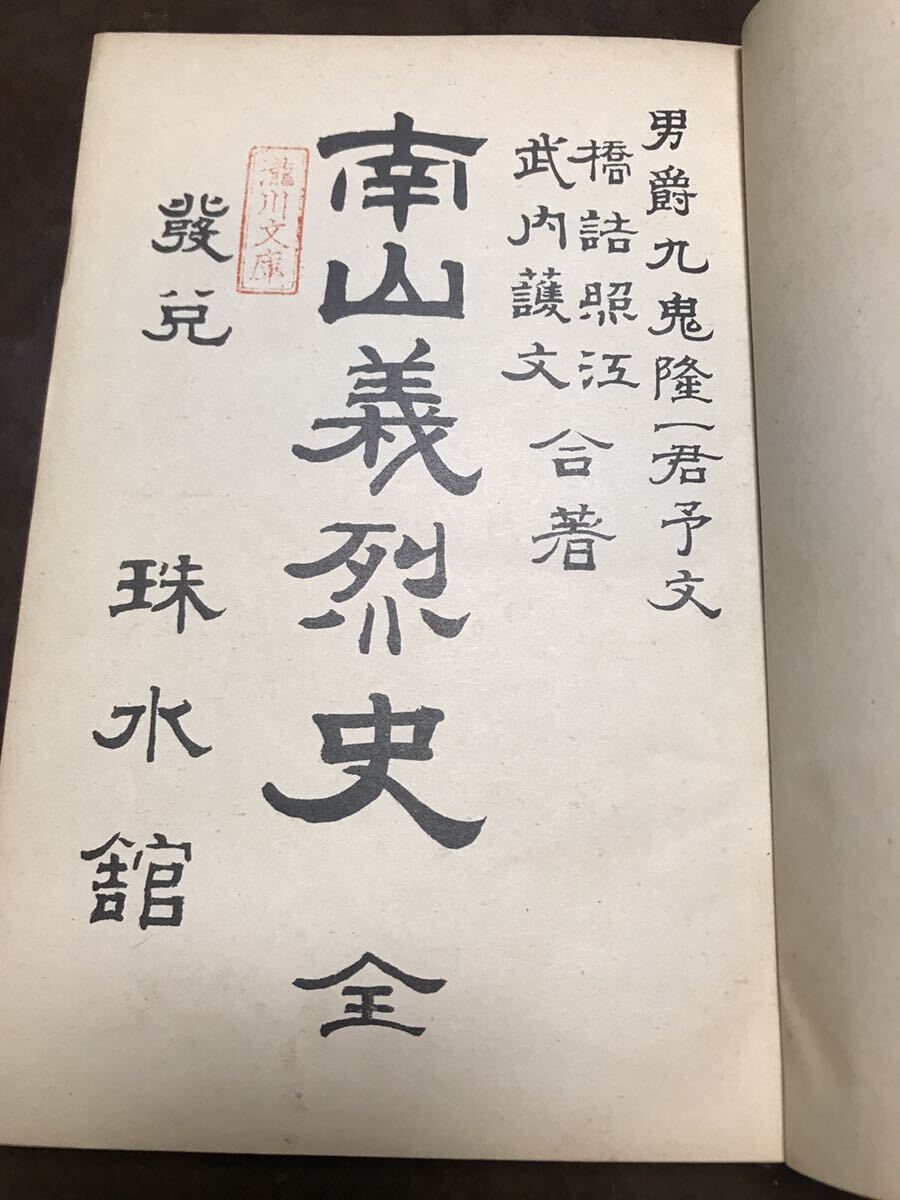 男爵九鬼隆一君予文
橋詰照江
武内護文
合著
南山義烈史 全
瀧川文庫
發兌 珠水館